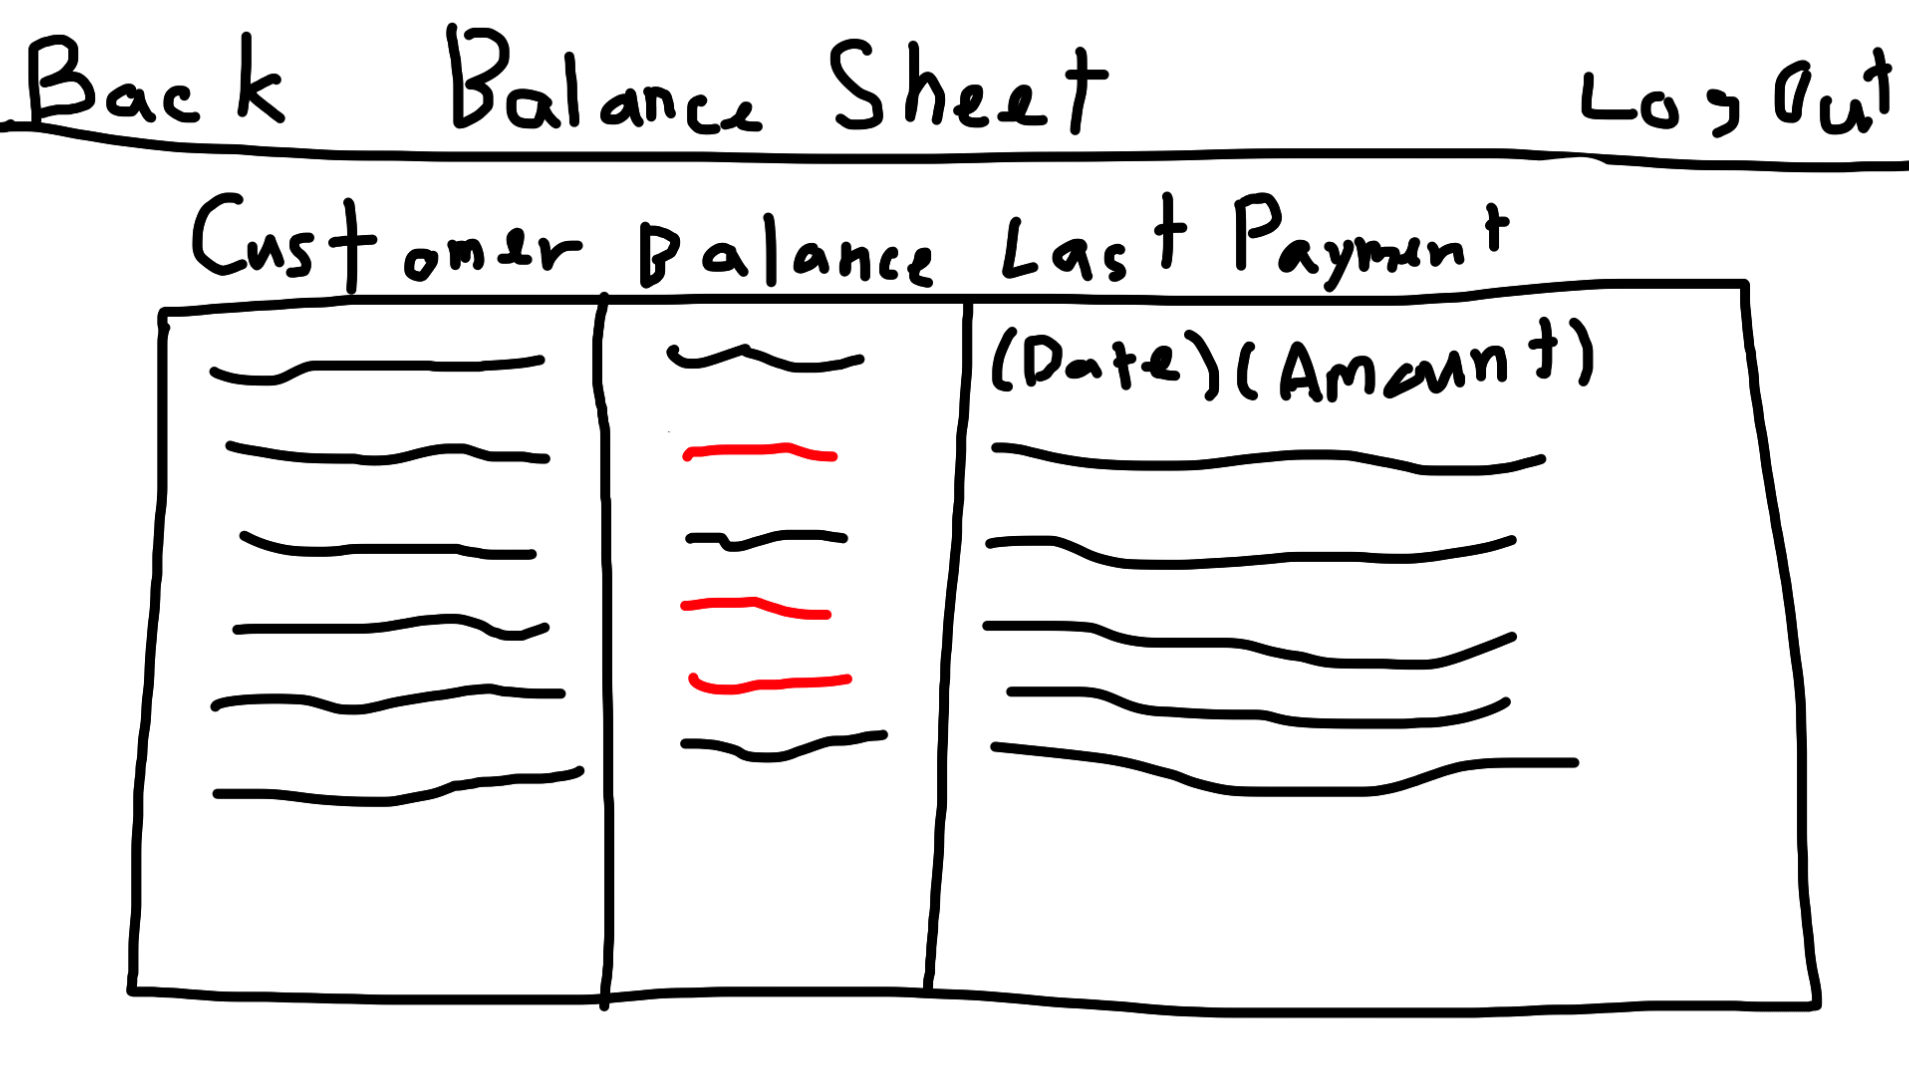 Back Balance Sheet Log Out
Customer Balance Last Payment
(Date) (Amount)